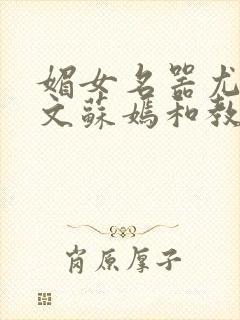 媚女名器尤
文蘇媽和教
肖原厚子